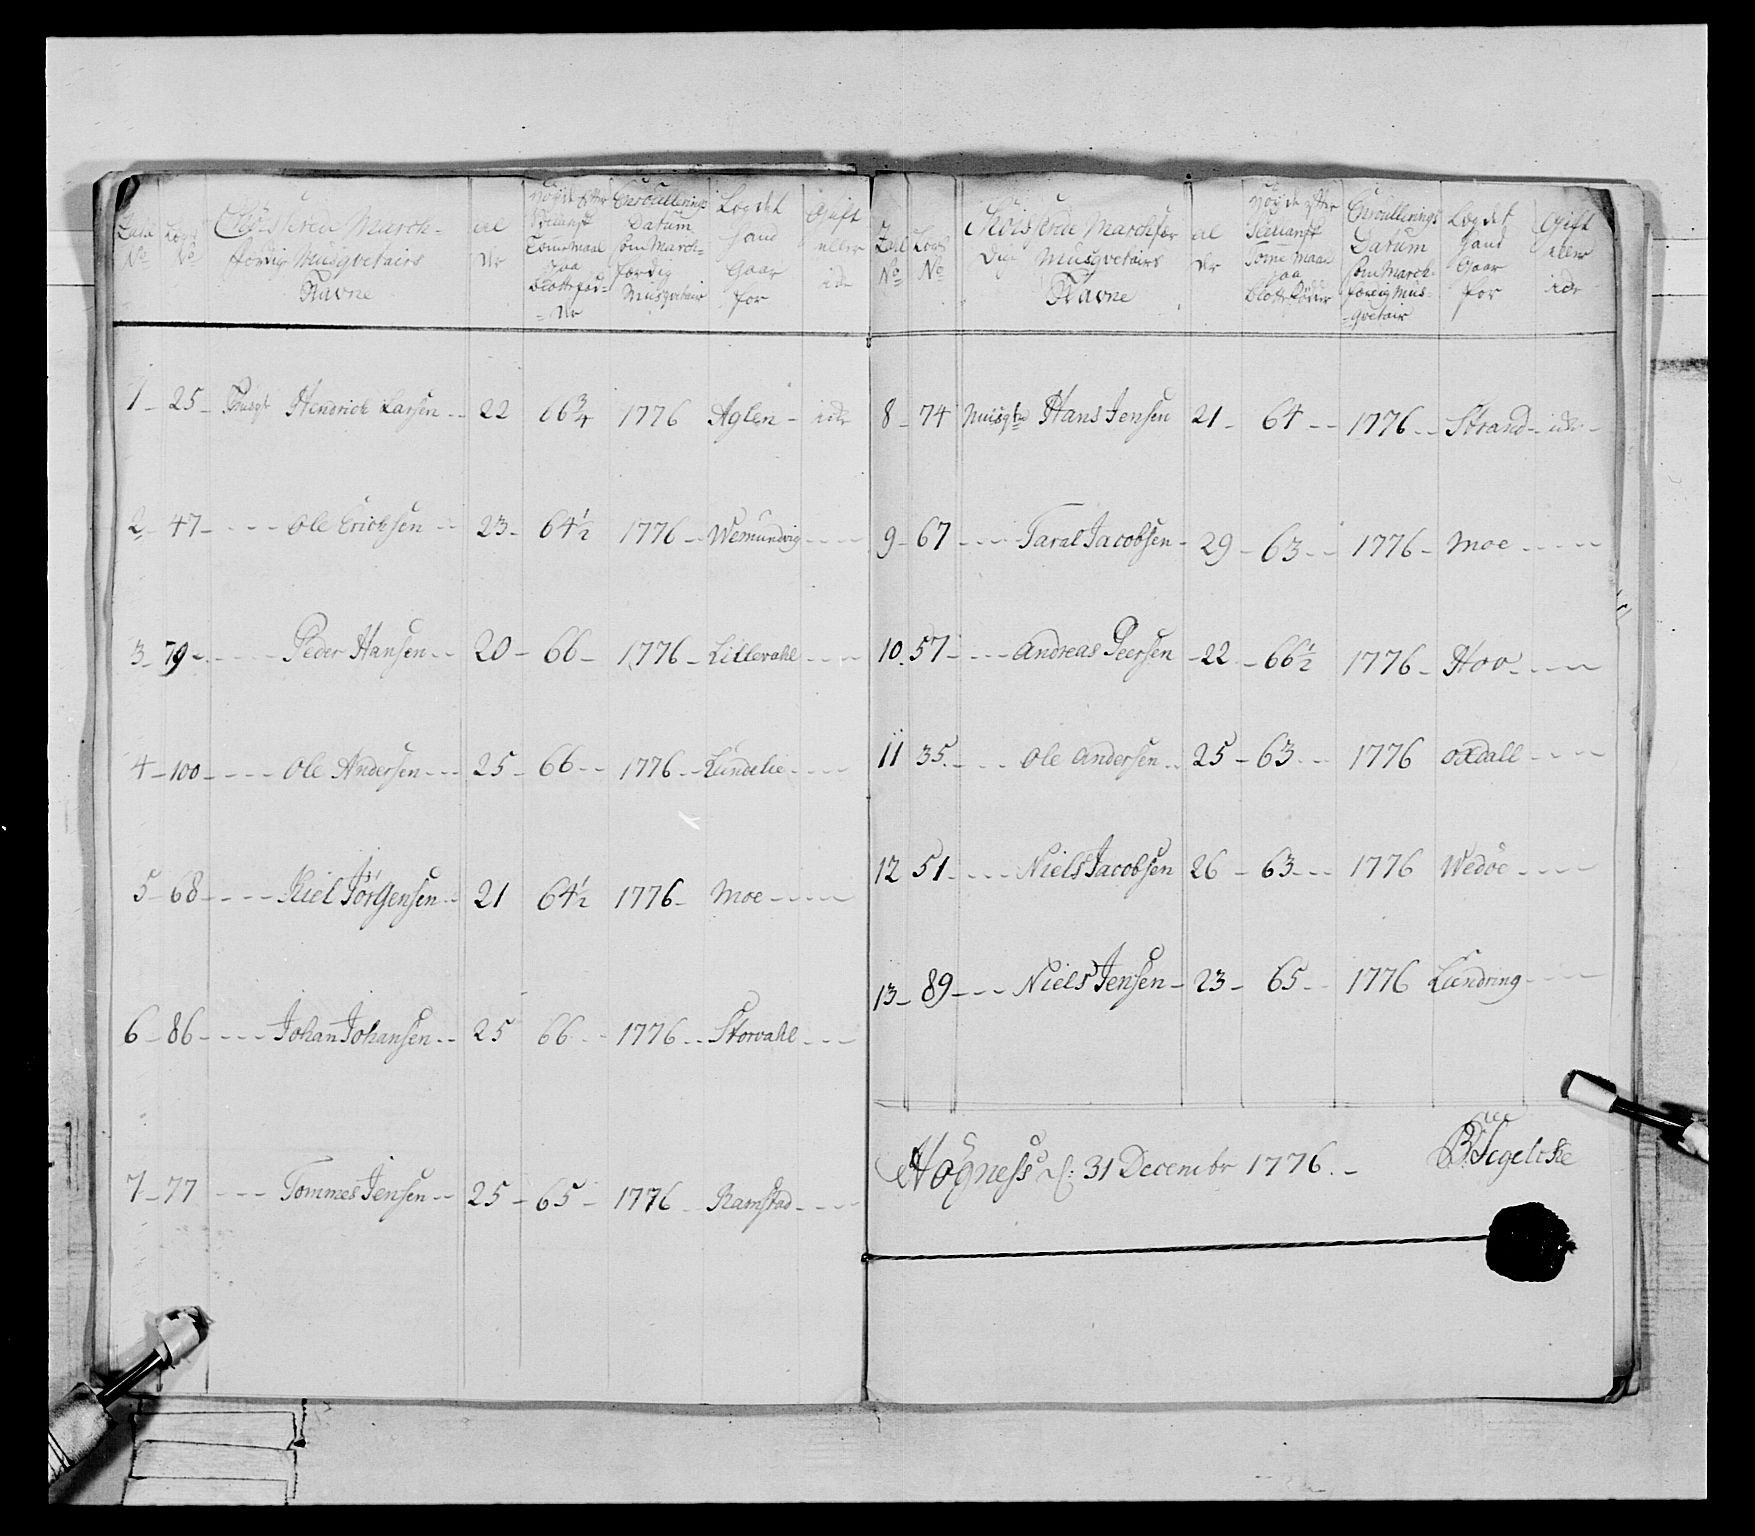 Zahl No
Logds No
March-
færdig Musqvetairs
Navne
al
der
Høyde Efter
Tomemaal
paa
blotte fød-
-der
Enroullerings
Datum
som March-
færdig
Musqvetair
Logdet
hand
Gaar
for
Gift
eller
icke
1 - 25 - Musqt Hendrich Larsen - - 22 66 3/4 1776 Aglen - icke
2 - 47 - - - - Ole Erichsen - - 23 - 64 1/2 1776 - - Wemundvig - - - -
3 - 79 - - - - - Peder Hansen - - 20 - 66 - 1776 - Lillevahl - - - -
4 - 100 - - - - Ole Andersen - - - 25 - 66 - - 1776 - - Lundelie - - - -
5 - 68 - - - - Kiel Jörgensen - - 21 64 1/2 1776 - Moe - - - - -
6 - 86 - - - - Johan Johansen - - 25 66 - - 1776 - - Storvahl - - -
7 - 77 - - - Tommes Jensen - - 25 - 65 - 1776 - Ramstad - - - -
Zahl No
Logds No
Marchfær
dig Musqvetairs
Navne
al
der
Høyde efter
Tomme Maal
paa
blotte Fødder
Enroullerings
Datum
som March-
færdig Mus-
-qvetair
Logdet
hand
Gaar
for
Gift
eller
icke
8 - 74 Musqtr Hans Jensen 21 - 64 - - 1776 - - Strand - icke -
9 - 67 - - - - Taral Jacobsen - 29 - 63 - - 1776 - Moe - - - - -
10 . 57 - - - - Andreas Peersen - 22 - 66 1/2 1776 - Hov - - - - -
11 35 . - - - Ole Andersen - - 25 - 63 - - - 1776 Oxdall - - - -
12 51 - - - - Niels Jacobsen 26 - 63 - - - 1776 Wedöe - - - -
13 - 89 - - - Niels Jensen - 23 - 65 - - 1776 Lundring - - -
Högness d: 31 Decembr 1776. -